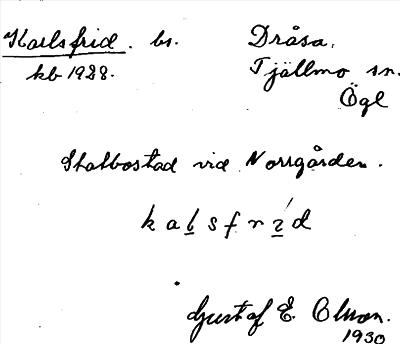 Karlsfrid. bs. Dråsa.
kb 1928. Tjällmo sn.
Ögl
Statbostad vid Norrgården.
k a l s f r i d
Gustaf E. Olsson.
1930